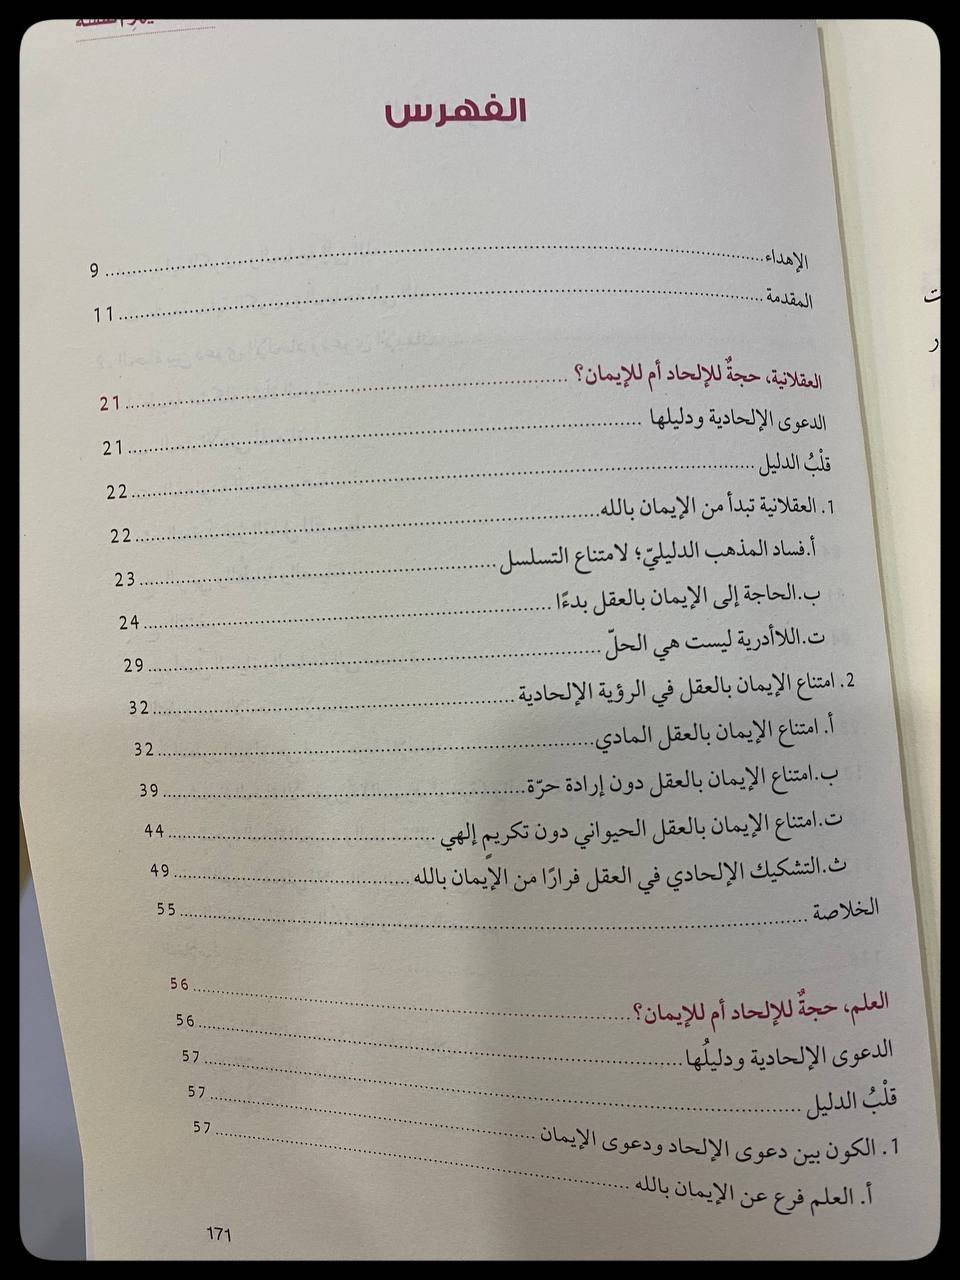 الفهرس
الإهداء ........ 9
المقدمة ........ 11
العقلانية، حجةٌ للإلحاد أم للإيمان؟ ........ 21
الدعوى الإلحادية ودليلها ........ 21
قلْبُ الدليل ........ 22
1. العقلانية تبدأ من الإيمان بالله ........ 22
أ.فساد المذهب الدليليّ؛ لامتناع التسلسل ........ 23
ب.الحاجة إلى الإيمان بالعقل بدءًا ........ 24
ت.اللاأدرية ليست هي الحلّ ........ 29
2. امتناع الإيمان بالعقل في الرؤية الإلحادية ........ 32
أ. امتناع الإيمان بالعقل المادي ........ 32
ب.امتناع الإيمان بالعقل دون إرادة حرّة ........ 39
ت.امتناع الإيمان بالعقل الحيواني دون تكريمٍ إلهي ........ 44
ث.التشكيك الإلحادي في العقل فرارًا من الإيمان بالله ........ 49
الخلاصة ........ 55
العلم، حجةٌ للإلحاد أم للإيمان؟ ........ 56
الدعوى الإلحادية ودليلُها ........ 56
قلْبُ الدليل ........ 57
1. الكون بين دعوى الإلحاد ودعوى الإيمان ........ 57
أ. العلم فرع عن الإيمان بالله ........ 57
171